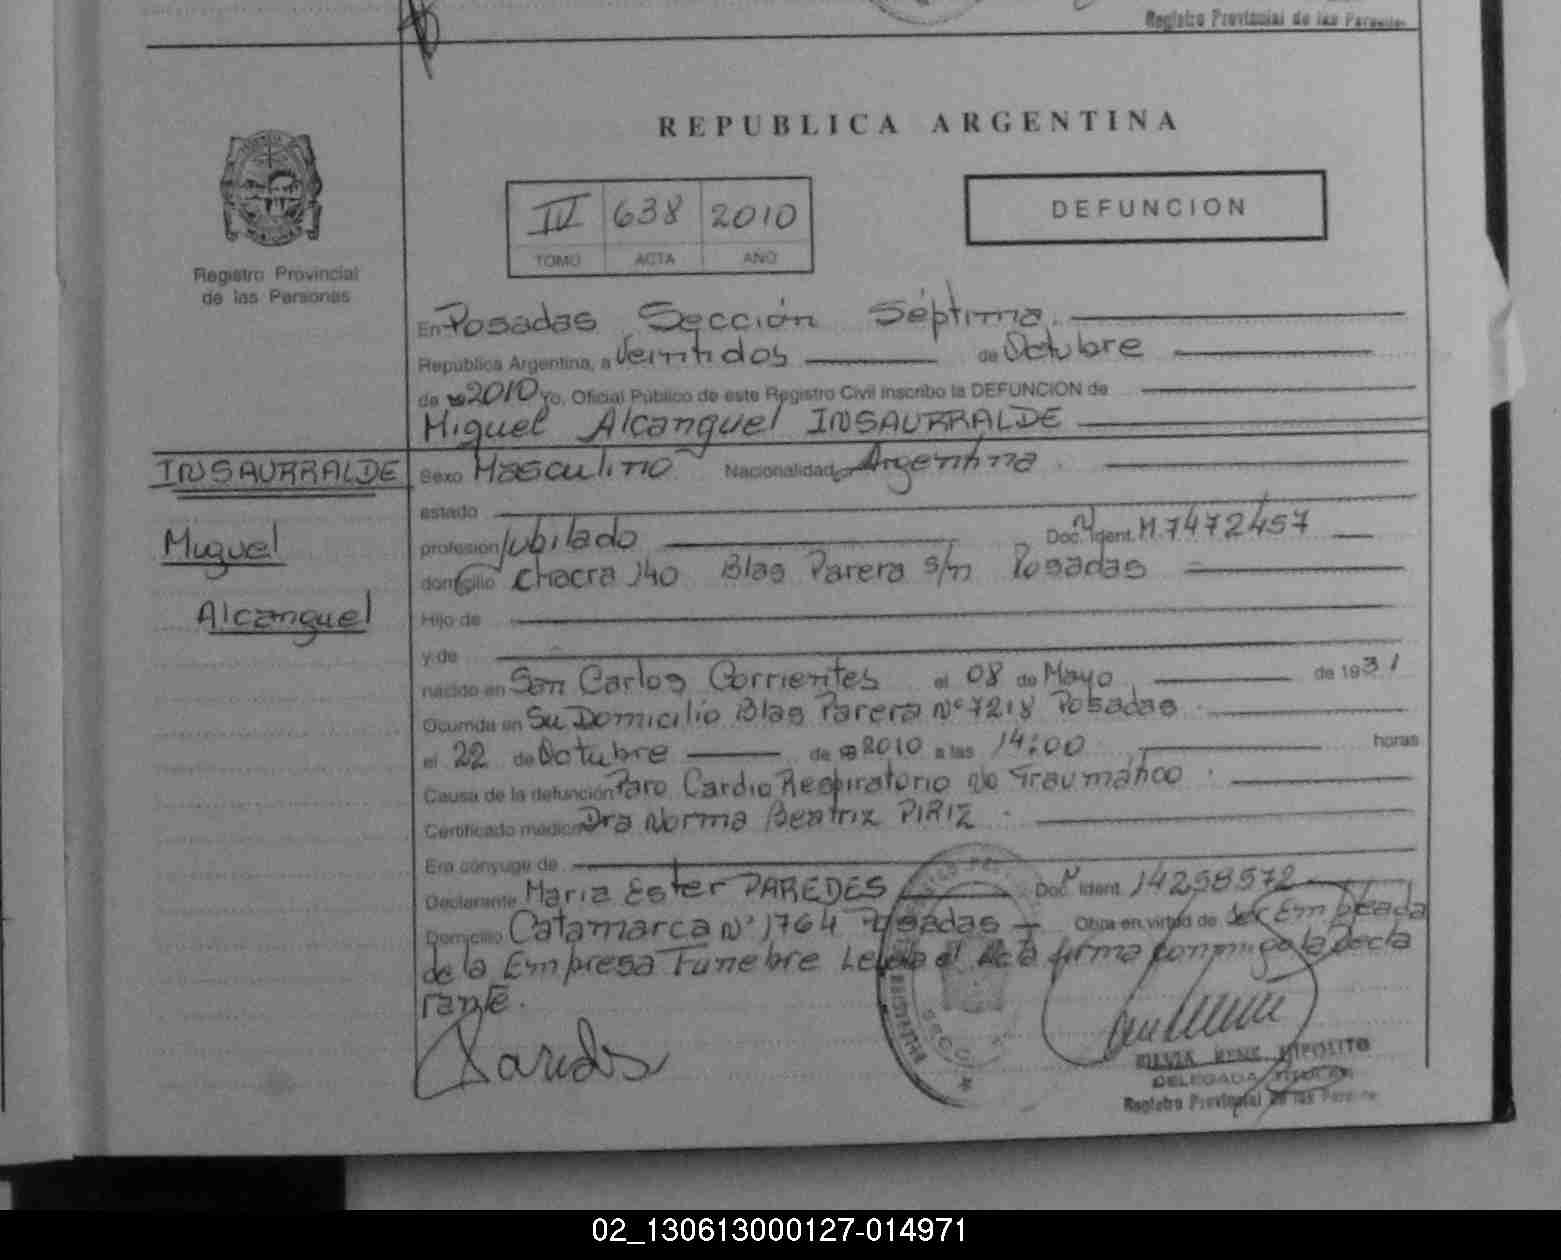 Registro Provincial de las Personas
REPUBLICA ARGENTINA
IV 638 2010
TOMO ACTA AÑO
DEFUNCION
Registro Provincial
de las Personas
En Posadas Sección Séptima.
República Argentina, a Veintidos de Octubre
de 2010 Yo, Oficial Público de este Registro Civil inscribo la DEFUNCION de
Miguel Alcanguel INSAURRALDE
INSAURRALDE
Miguel
Alcanguel
Sexo Masculino Nacionalidad Argentina
estado
profesion Jubilado Doc. Ident. M.7472457
domicilio Chacra 140 Blas Parera s/n Posadas
Hijo de
y de
nacido en San Carlos Corrientes el 08 de Mayo de 1931
Ocurrida en Su Domicilio Blas Parera N° 7218 Posadas
el 22 de Octubre de 2010 a las 14:00 horas
Causa de la defunción Paro Cardio Respiratorio No Traumático
Certificado médico Dra Norma Beatriz PIRIZ
Era cónyuge de
Declarante Maria Ester PAREDES Doc. Ident. 14258572
Domicilio Catamarca N° 1764 Posadas Obra en virtud de ser Empleada
de la Empresa Funebre Leida el Acta firma conmigo la decla
rante.
Paredes
HIPOLITO
DELEGADA TITULAR
Registro Provincial de las Personas
02_130613000127-014971